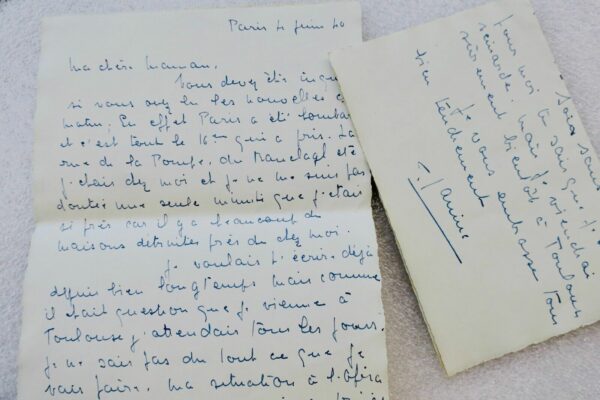 Paris 4 juin 40
Ma chère Maman,
Vous devez être inqui
si vous avez lu les nouvelles ce
matin. En effet Paris a été bombar
et c'est tout le 16ème qui a pris. La
rue de la Pompe, du Ranelagh etc
j'étais chez moi et je ne me suis pas
doutée une seule minute que j'étais
si près car il y a beaucoup de
maisons détruites près de chez moi.
Je voulais t'écrire déjà
depuis bien longtemps mais comme
il était question que je vienne à
Toulouse j'attendais tous les jours.
Je ne sais pas du tout ce que je
vais faire. Ma situation à l'Opéra
Sois sans
pour moi tu sais que je
mais je viendrai
sûrement bientôt à Toulouse
Je vous embrasse tous
bien tendrement
J. Janine